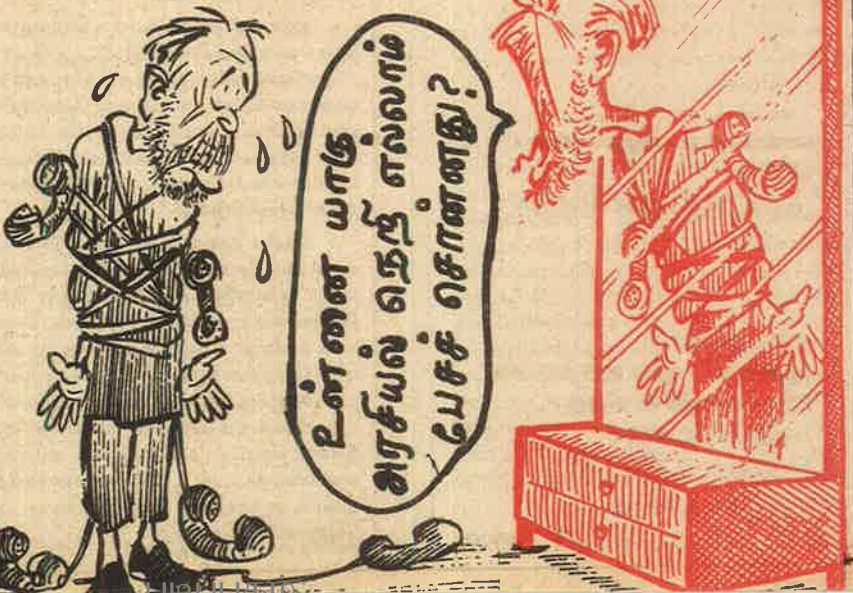 உன்னை யாரு
அரசியல் நெறி எல்லாம்
பேசச் சொன்னது?